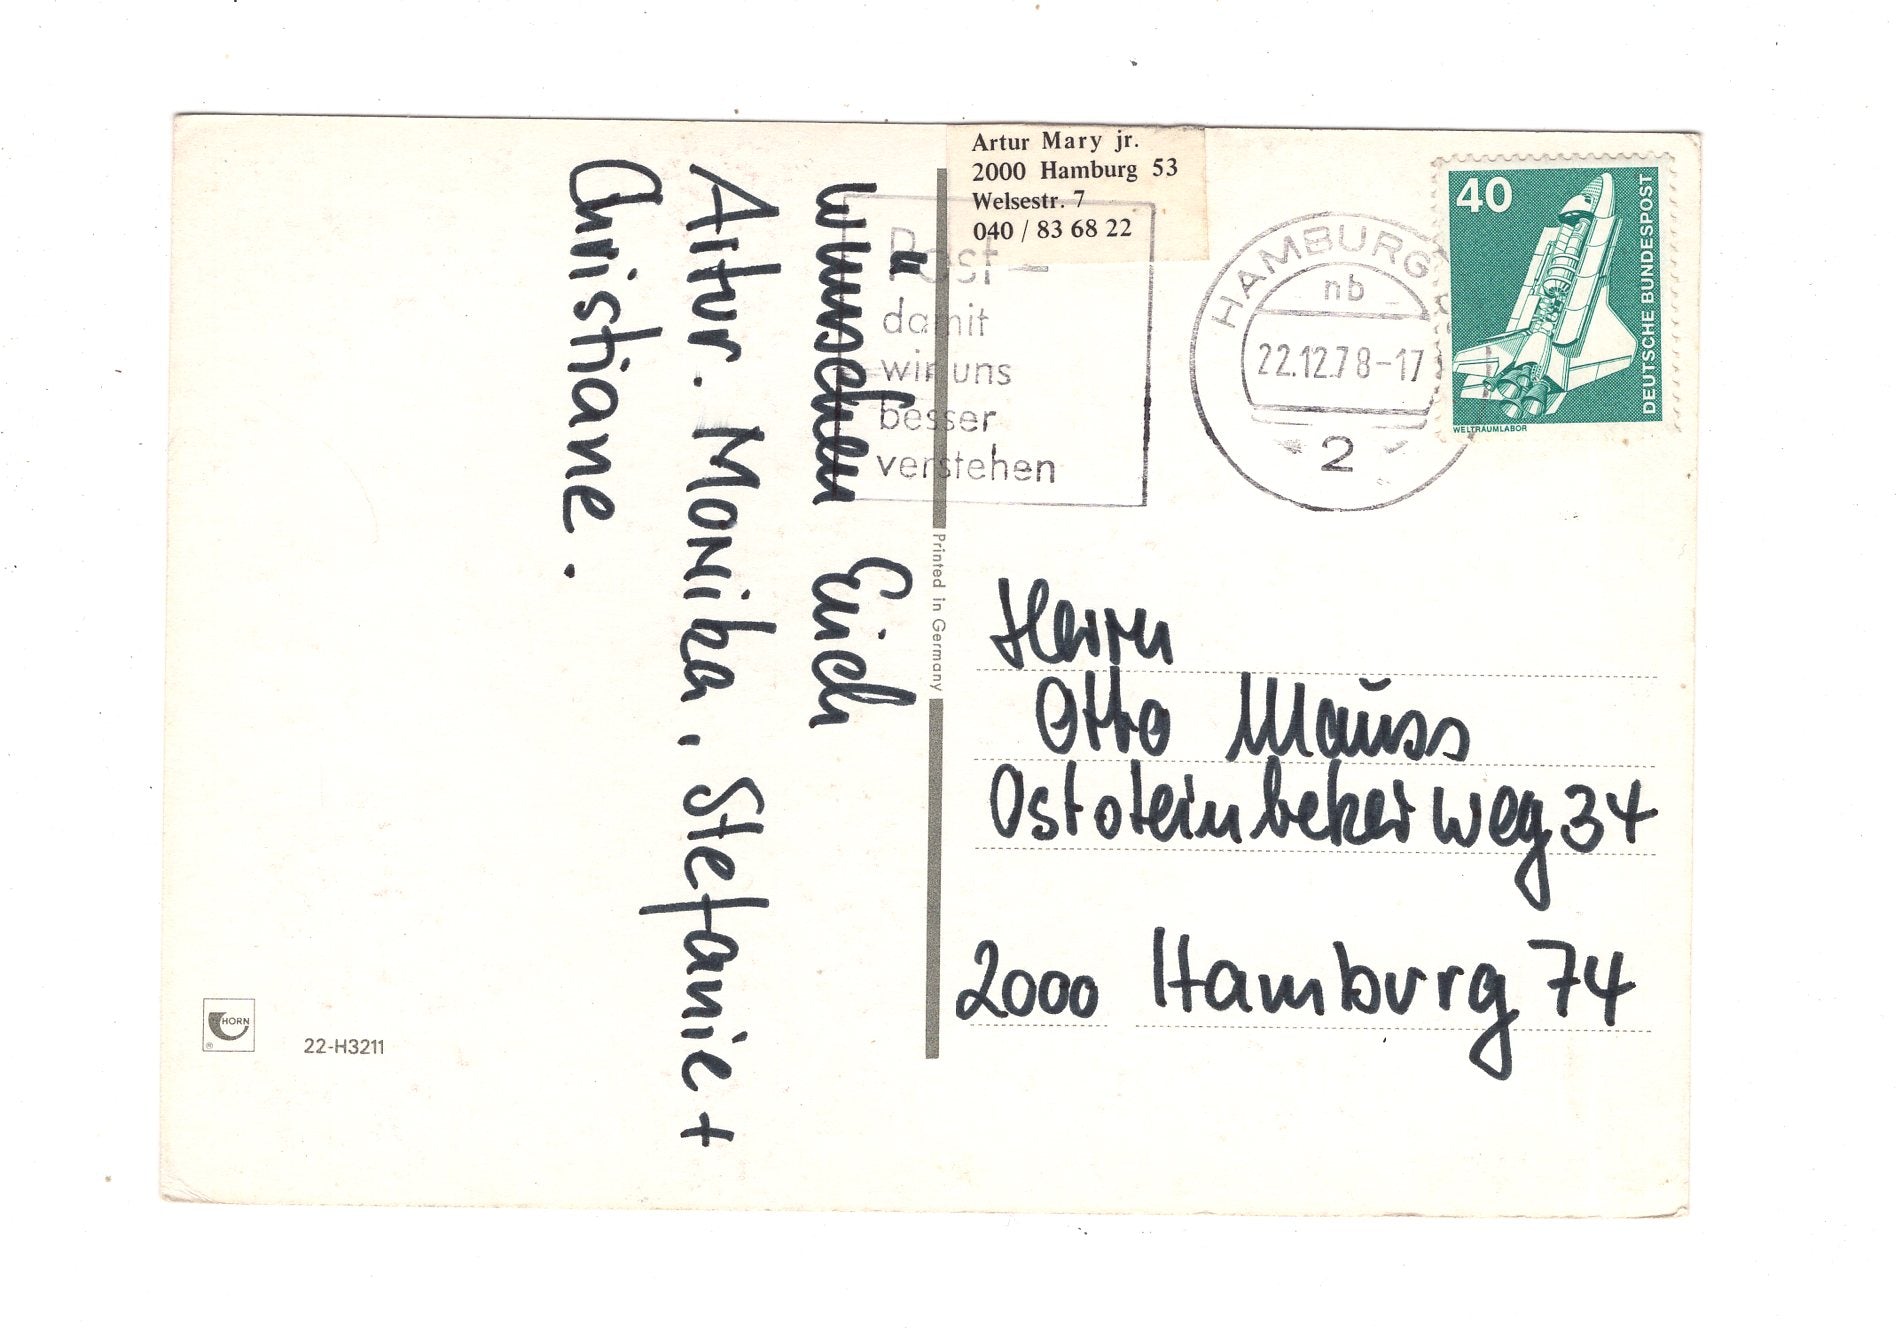 Artur Mary jr.
2000 Hamburg 53
Welsestr. 7
040 / 83 68 22
Post –
damit
wir uns
besser
verstehen
HAMBURG
nb
22.12.78-17
2
40
DEUTSCHE BUNDESPOST
WELTRAUMLABOR
wünschen Euch
Artur. Monika, Stefanie +
Christiane.
Printed in Germany
Herrn
Otto Mauss
Ostoteinbeker weg 34
2000 Hamburg 74
HORN
®
22-H3211